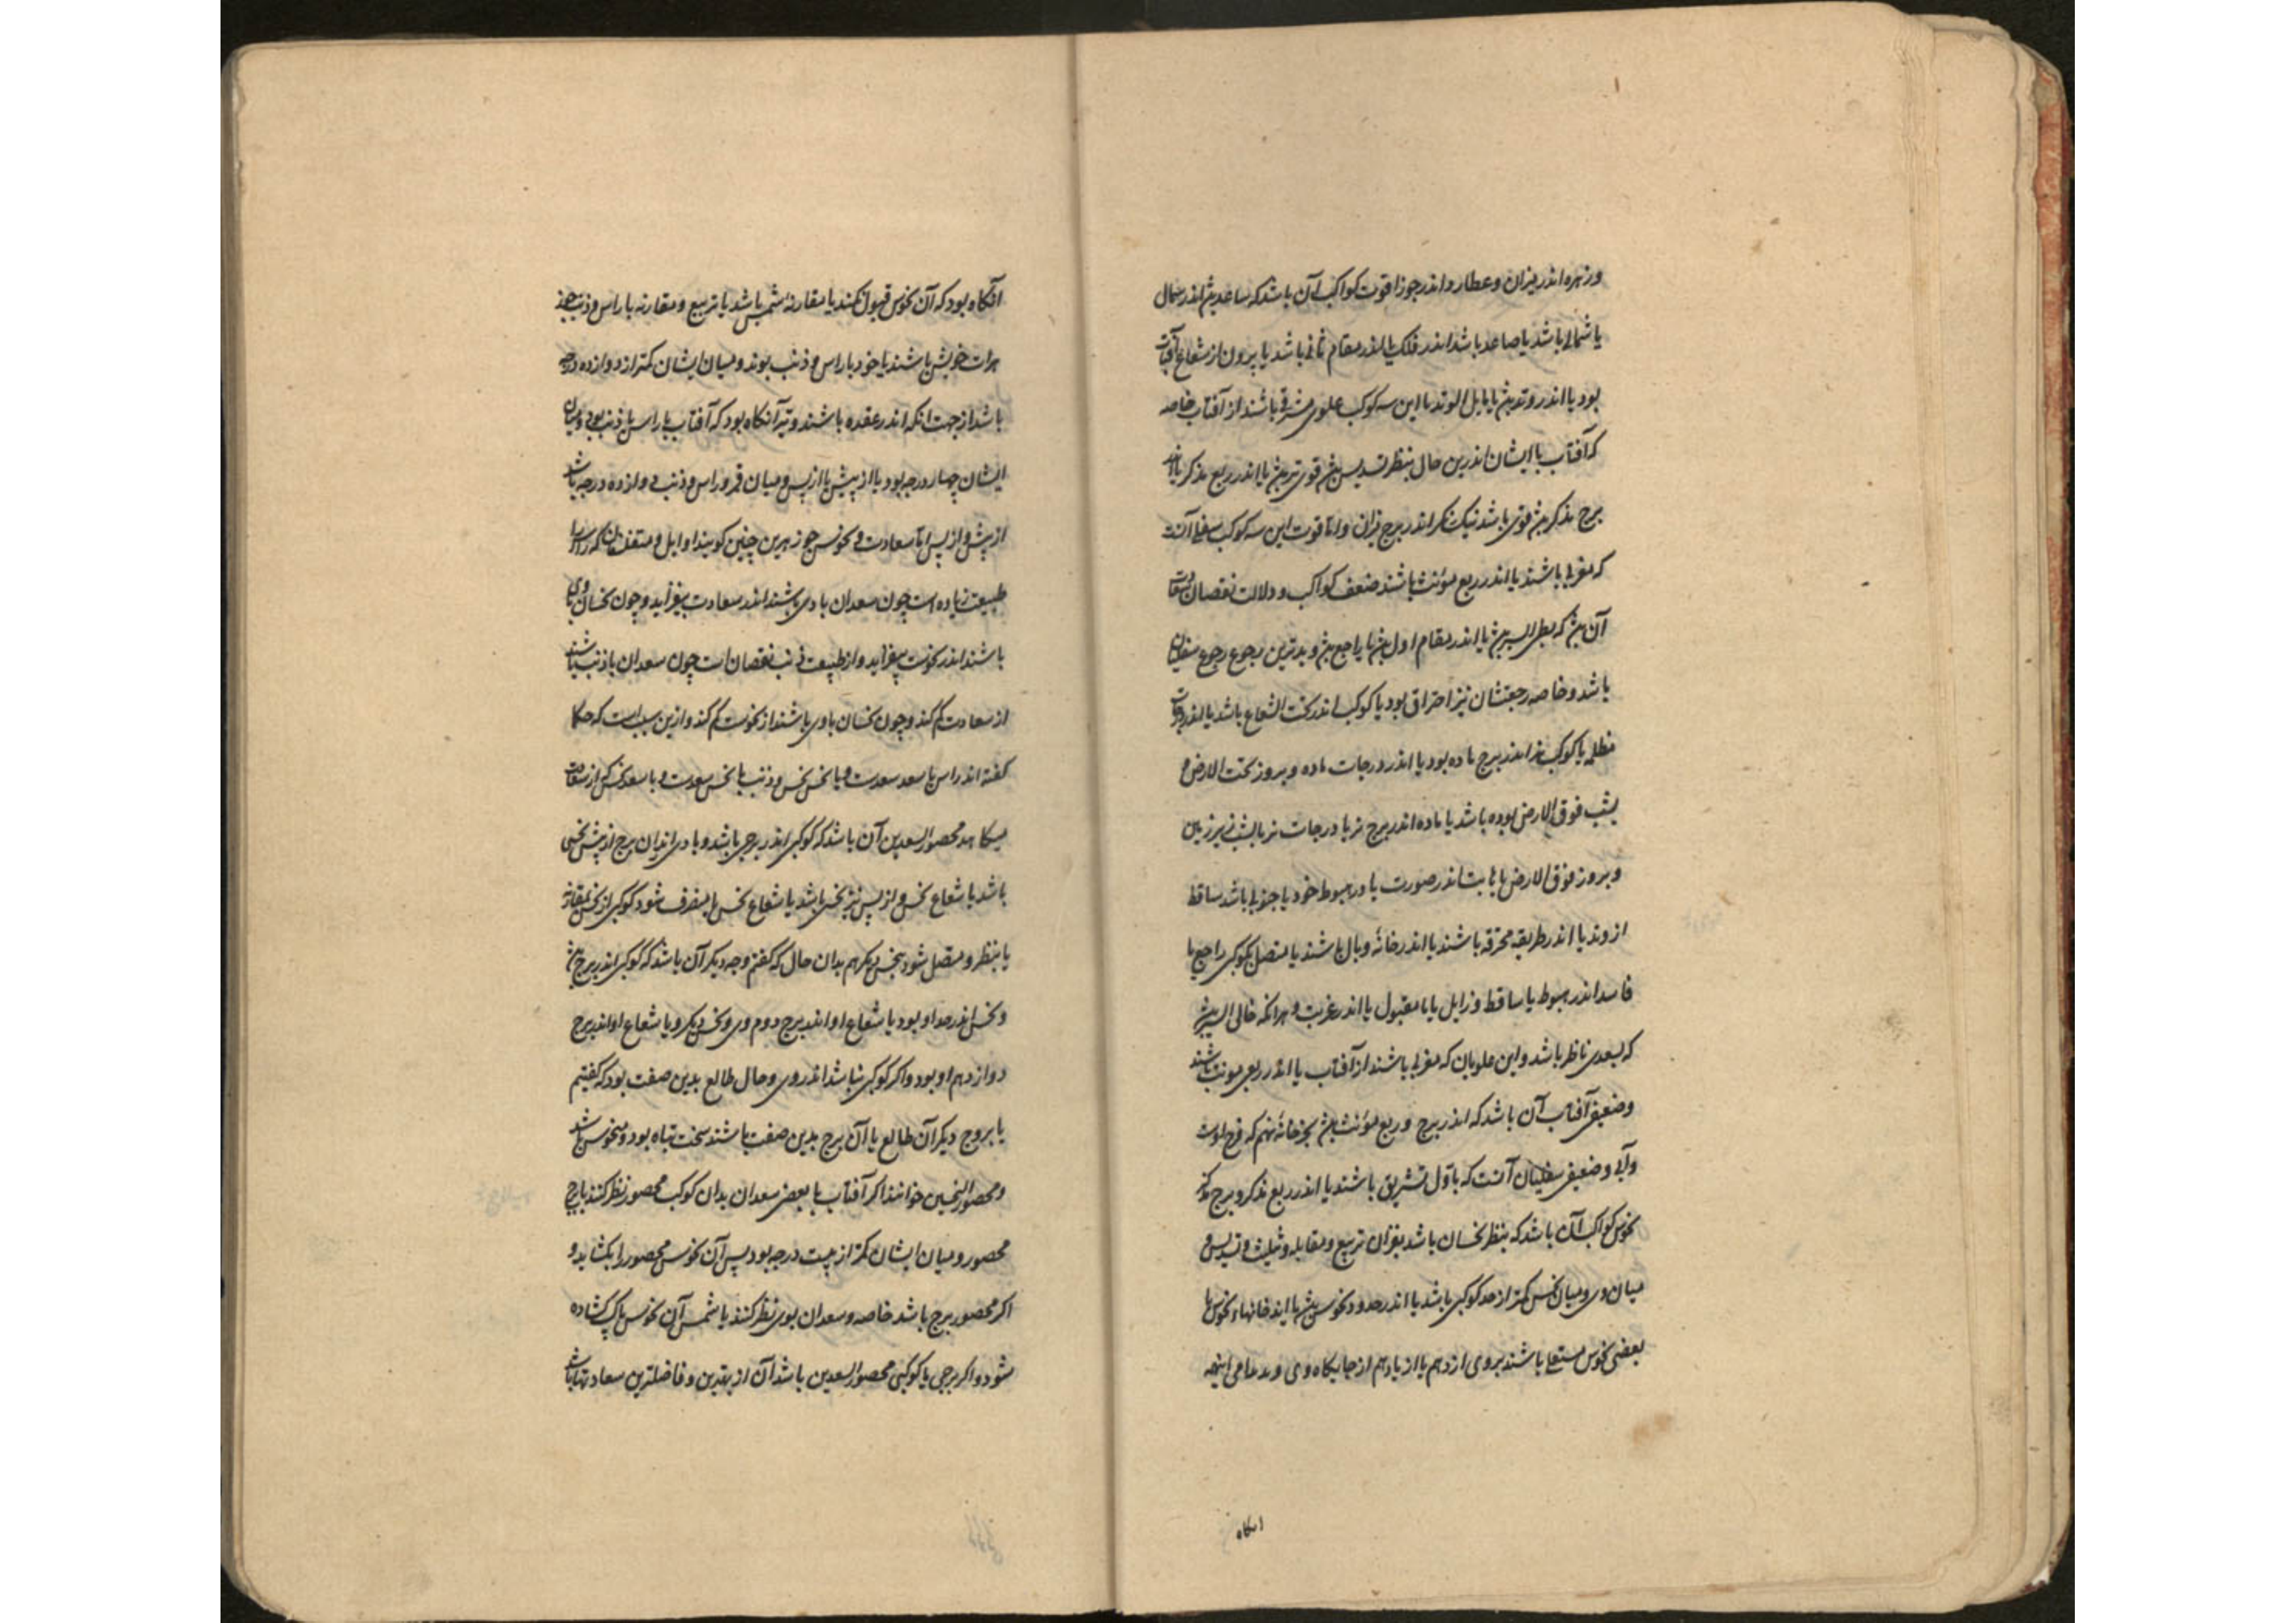 و زهره اندر میزان و عطارد اندر جوزا قوت کواکب آن باشد که صاعد بود اندر شمال
یا شمالی باشد یا صاعد باشد اندر فلک یا اندر مقام ثانی باشد یا بیرون از شعاع آفتاب
بود یا اندر وتد یا مایل الوتد با این سه کوکب علوی مشرقی باشند از آفتاب خاصه
که آفتاب با ایشان اندرین حال بنظر تسدیس قوی تر یا اندر ربع مذکر یا اندر
برج مذکر قوی باشد نیک مگر اندر برج میزان و اما قوت این سه کوکب سفلی آنست
که مغربی باشند یا اندر ربع مؤنث باشند ضعف کواکب و دلالت نقصان سعادت
آن که بطی السیر یا اندر مقام اول یا راجع و بدترین رجوع رجوع سفلیان
باشد و خاصه رجعتشان نیز احتراق بود یا کوکب اندر تحت الشعاع باشد یا اندر درجات
مظلمه یا کوکب نر اندر برج ماده بود یا اندر درجات ماده و بروز تحت الارض و
بشب فوق الارض بوده باشد یا ماده اندر برج نر یا درجات نر یا بشب زیر زمین
و بروز فوق الارض یا اندر صورت یا در هبوط خود یا جنوبی باشد ساقط
از وتد یا اندر طریقه محترقه باشند یا اندر خانه وبال باشند یا متصل بکوکبی راجع یا
فاسد اندر هبوط یا ساقط و زایل یا نامقبول یا اندر غربت و هرانکه خالی السیر
که بسعدی ناظر باشد و این علویان که مغربی باشند از آفتاب یا اندر ربعی مونث باشند
و ضعیفی آفتاب آن باشد که اندر برج و ربع مؤنث بجز خانه نهم که فرح اوست
و ضعیفی سفلیان آنست که باول تشریق باشند یا اندر ربع مذکر و برج مذکر
نحوس کواکب آن باشد که بنظر نحسان باشد بقران تربیع و مقابله و تثلیث و تسدیس و
میان وی و میان نحس کمتر از حد کوکبی باشد یا اندر حدود نحوس یا اندر خانهاء نحوس یا
بعضی نحوس مستعلی باشند بروی از دهم یا از یازدهم از جایگاه وی و اینهمه
انکاه
آنکاه بود که آن نحوس قبول نکند یا مقارنه شمس باشد یا تربیع و مقارنه با راس و ذنب
باشند یا خود با راس و ذنب بوند و میان ایشان کمتر از دوازده درجه
باشد از جهت انکه اندر عقده باشند و تیره آنکاه بود که آفتاب با راس یا ذنب بود و میان
ایشان چهار درجه بود یا از پیش یا از پس و میان قمر و راس و ذنب دوازده درجه باشد
از پیش و از پس اما سعادت و نحوس جوزهرین چنین کویند اوایل و متفقند که راس را
طبیعت زیاده است چون سعدان با وی باشند اندر سعادت بیفزاید و چون نحسان با وی
باشند اندر نحوست بیفزاید و از طبیعت ذنب نقصان است چون سعدان با ذنب باشند
از سعادت کم کند و چون نحسان با وی باشند از نحوست کم کند و ازین سبب است که حکما
کفته اند راس با سعد سعدست و با نحس نحس و ذنب با نحس سعدست و با سعد نحس که از سعادت
میکاهد محصور السعدین آن باشد که کوکبی اندر برجی باشد و با وی اندران برج از پیش نحسی
باشد یا شعاع نحس و از پس نیز نحس باشد یا شعاع نحس یا منصرف شود کوکبی از نحس بمقارنه
یا بنظر و متصل شود بنحس دیکر هم بدان حال که کفتم وجه دیکر آن باشد که کوکبی اندر برج
و نحس اندر حد او بود یا شعاع او اندر برج دوم وی و نحس دیکر و یا شعاع او اندر برج
دوازدهم او بود و اکر کوکبی نباشد اندر وی و حال طالع بدین صفت بود که کفتیم
یا بروج دیکر آن طالع یا آن برج بدین صفت باشند سخت تباه بود و منحوس باشد
و محصور النحسین خوانند اکر آفتاب یا بعضی سعدان بدان کوکب محصور نظر کنند یا برج
محصور و میان ایشان کمتر از بیست درجه بود پس آن نحوس محصور را بکشاید و
اکر محصور برج باشد خاصه و سعدان بوی نظر کنند یا شمس آن نحوس پاک کشاده
شود و اکر برجی یا کوکبی محصور السعدین باشد آن از بهترین و فاضلترین سعادتها باشد